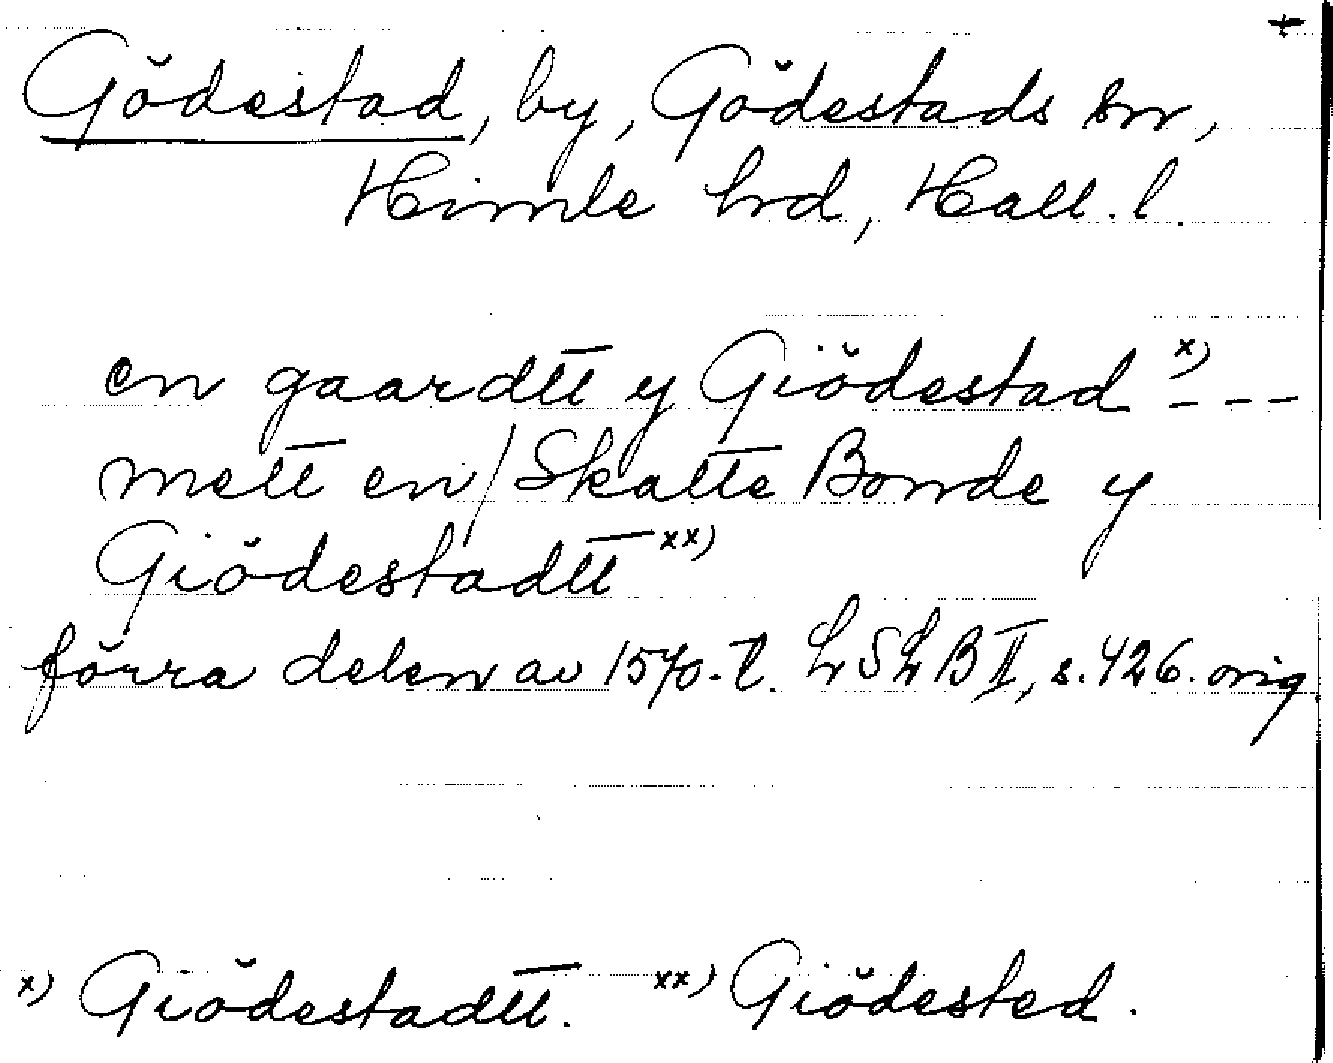 Gödestad, by, Gödestads sn,
Himle hrd, Hall. l.
en gaardtt y Giödestad x) ---
mett en / Skatte Bonde y
Giödestadtt xx)
förra delen av 1570-t. LSLB II, s. 426. orig.
x) Giödestadtt. xx) Giödested.